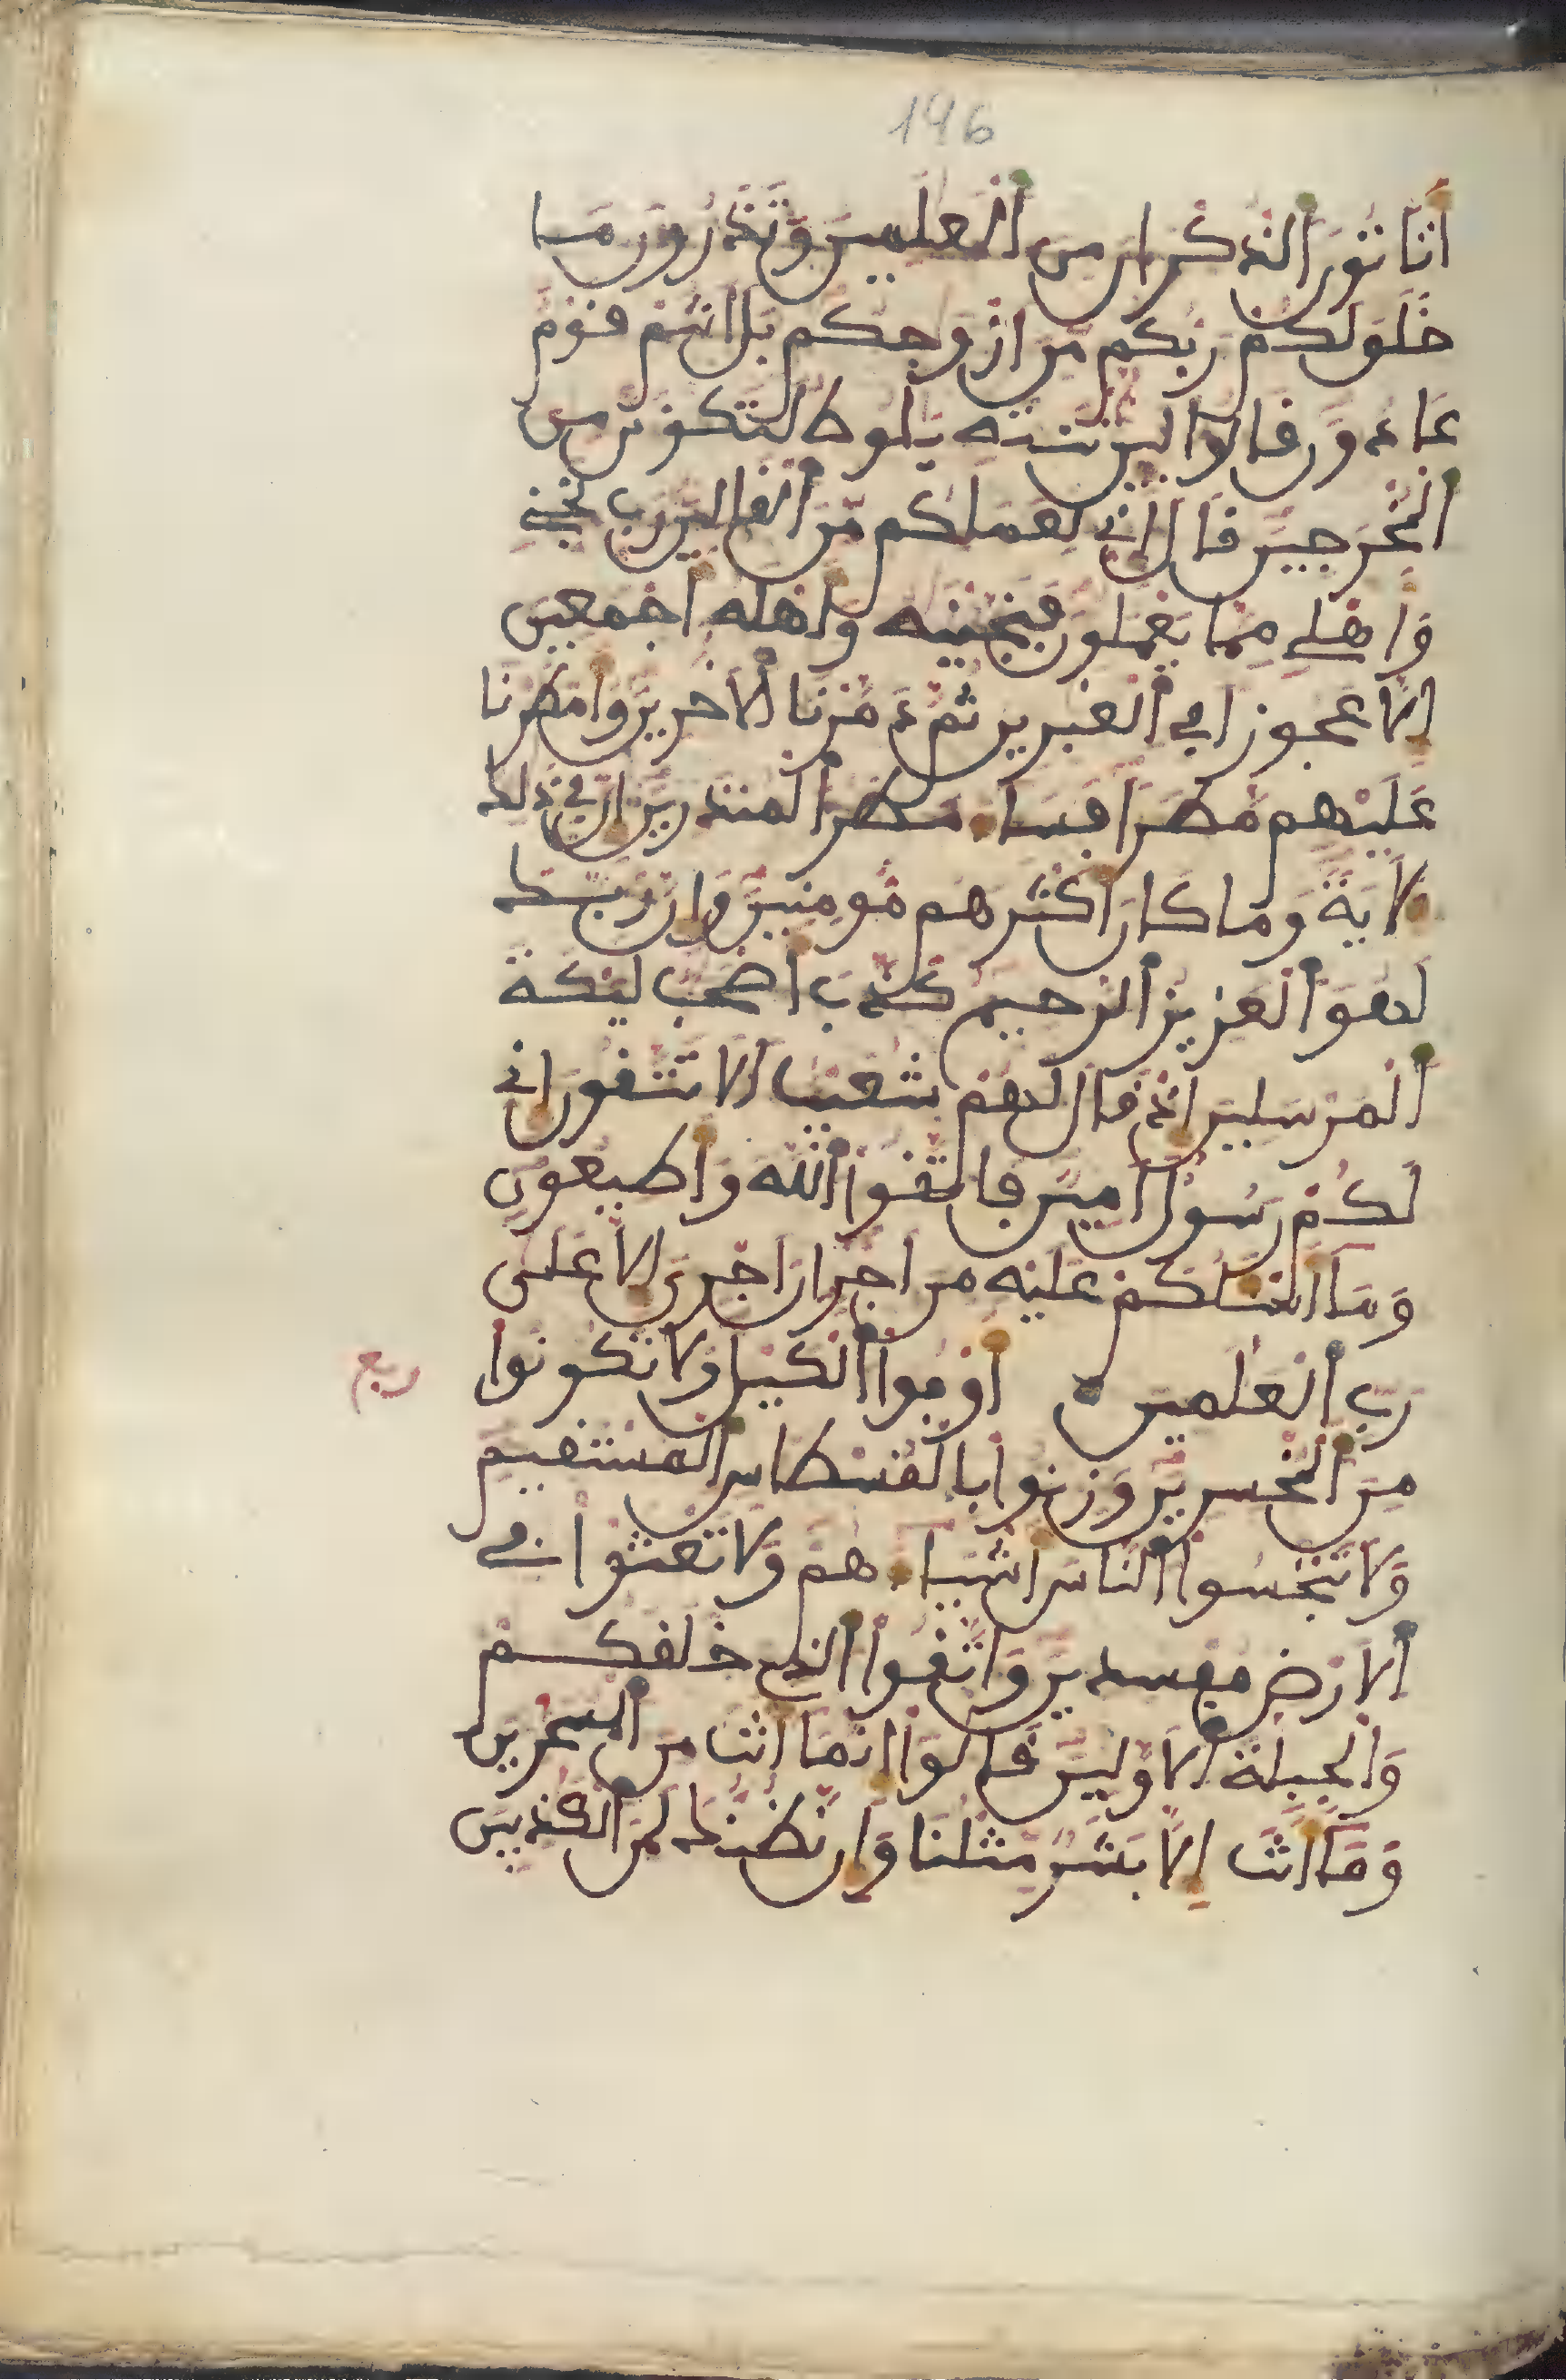 146
اتاتون الذكران من العلمين وتذرون ما
خلق لكم ربكم من ازوجكم بل انتم قوم
عادون قالوا لين لم تنته يلوط لتكونن من
المخرجين قال اني لعملكم من القالين رب نجني
واهلي مما يعملون فنجينه واهله اجمعين
الا عجوزا في الغبرين ثم دمرنا الاخرين وامطرنا
عليهم مطرا فساء مطر المنذرين ان في ذلك
لاية وما كان اكثرهم مومنين وان ربك
لهو العزيز الرحيم كذب اصحب ليكة
المرسلين اذ قال لهم شعيب الا تتقون اني
لكم رسول امين فاتقوا الله واطيعون
وما اسلكم عليه من اجر ان اجري الا على
رب العلمين اوفوا الكيل ولا تكونوا
ربع
من المخسرين وزنوا بالقسطاس المستقيم
ولا تبخسوا الناس اشياءهم ولا تعثوا في
الارض مفسدين واتقوا الذي خلقكم
والجبلة الاولين قالوا انما انت من المسحرين
وما انت الا بشر مثلنا وان نظنك لمن الكذبين